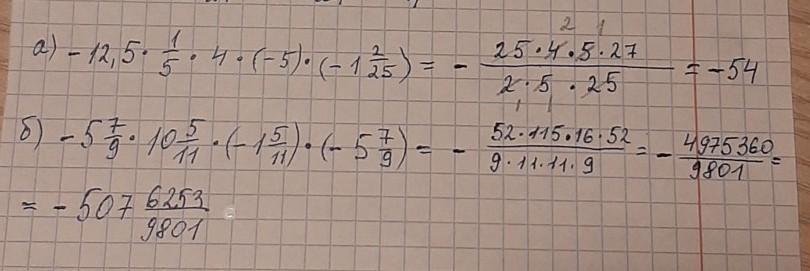 а) -12,5 · 1/5 · 4 · (-5) · (-1 2/25) = - (25·4·5·27)/(2·5·25) = -54
2 1
1 1
б) -5 7/9 · 10 5/11 · (-1 5/11) · (-5 7/9) = - (52·115·16·52)/(9·11·11·9) = - 4975360/9801 =
= -507 6253/9801